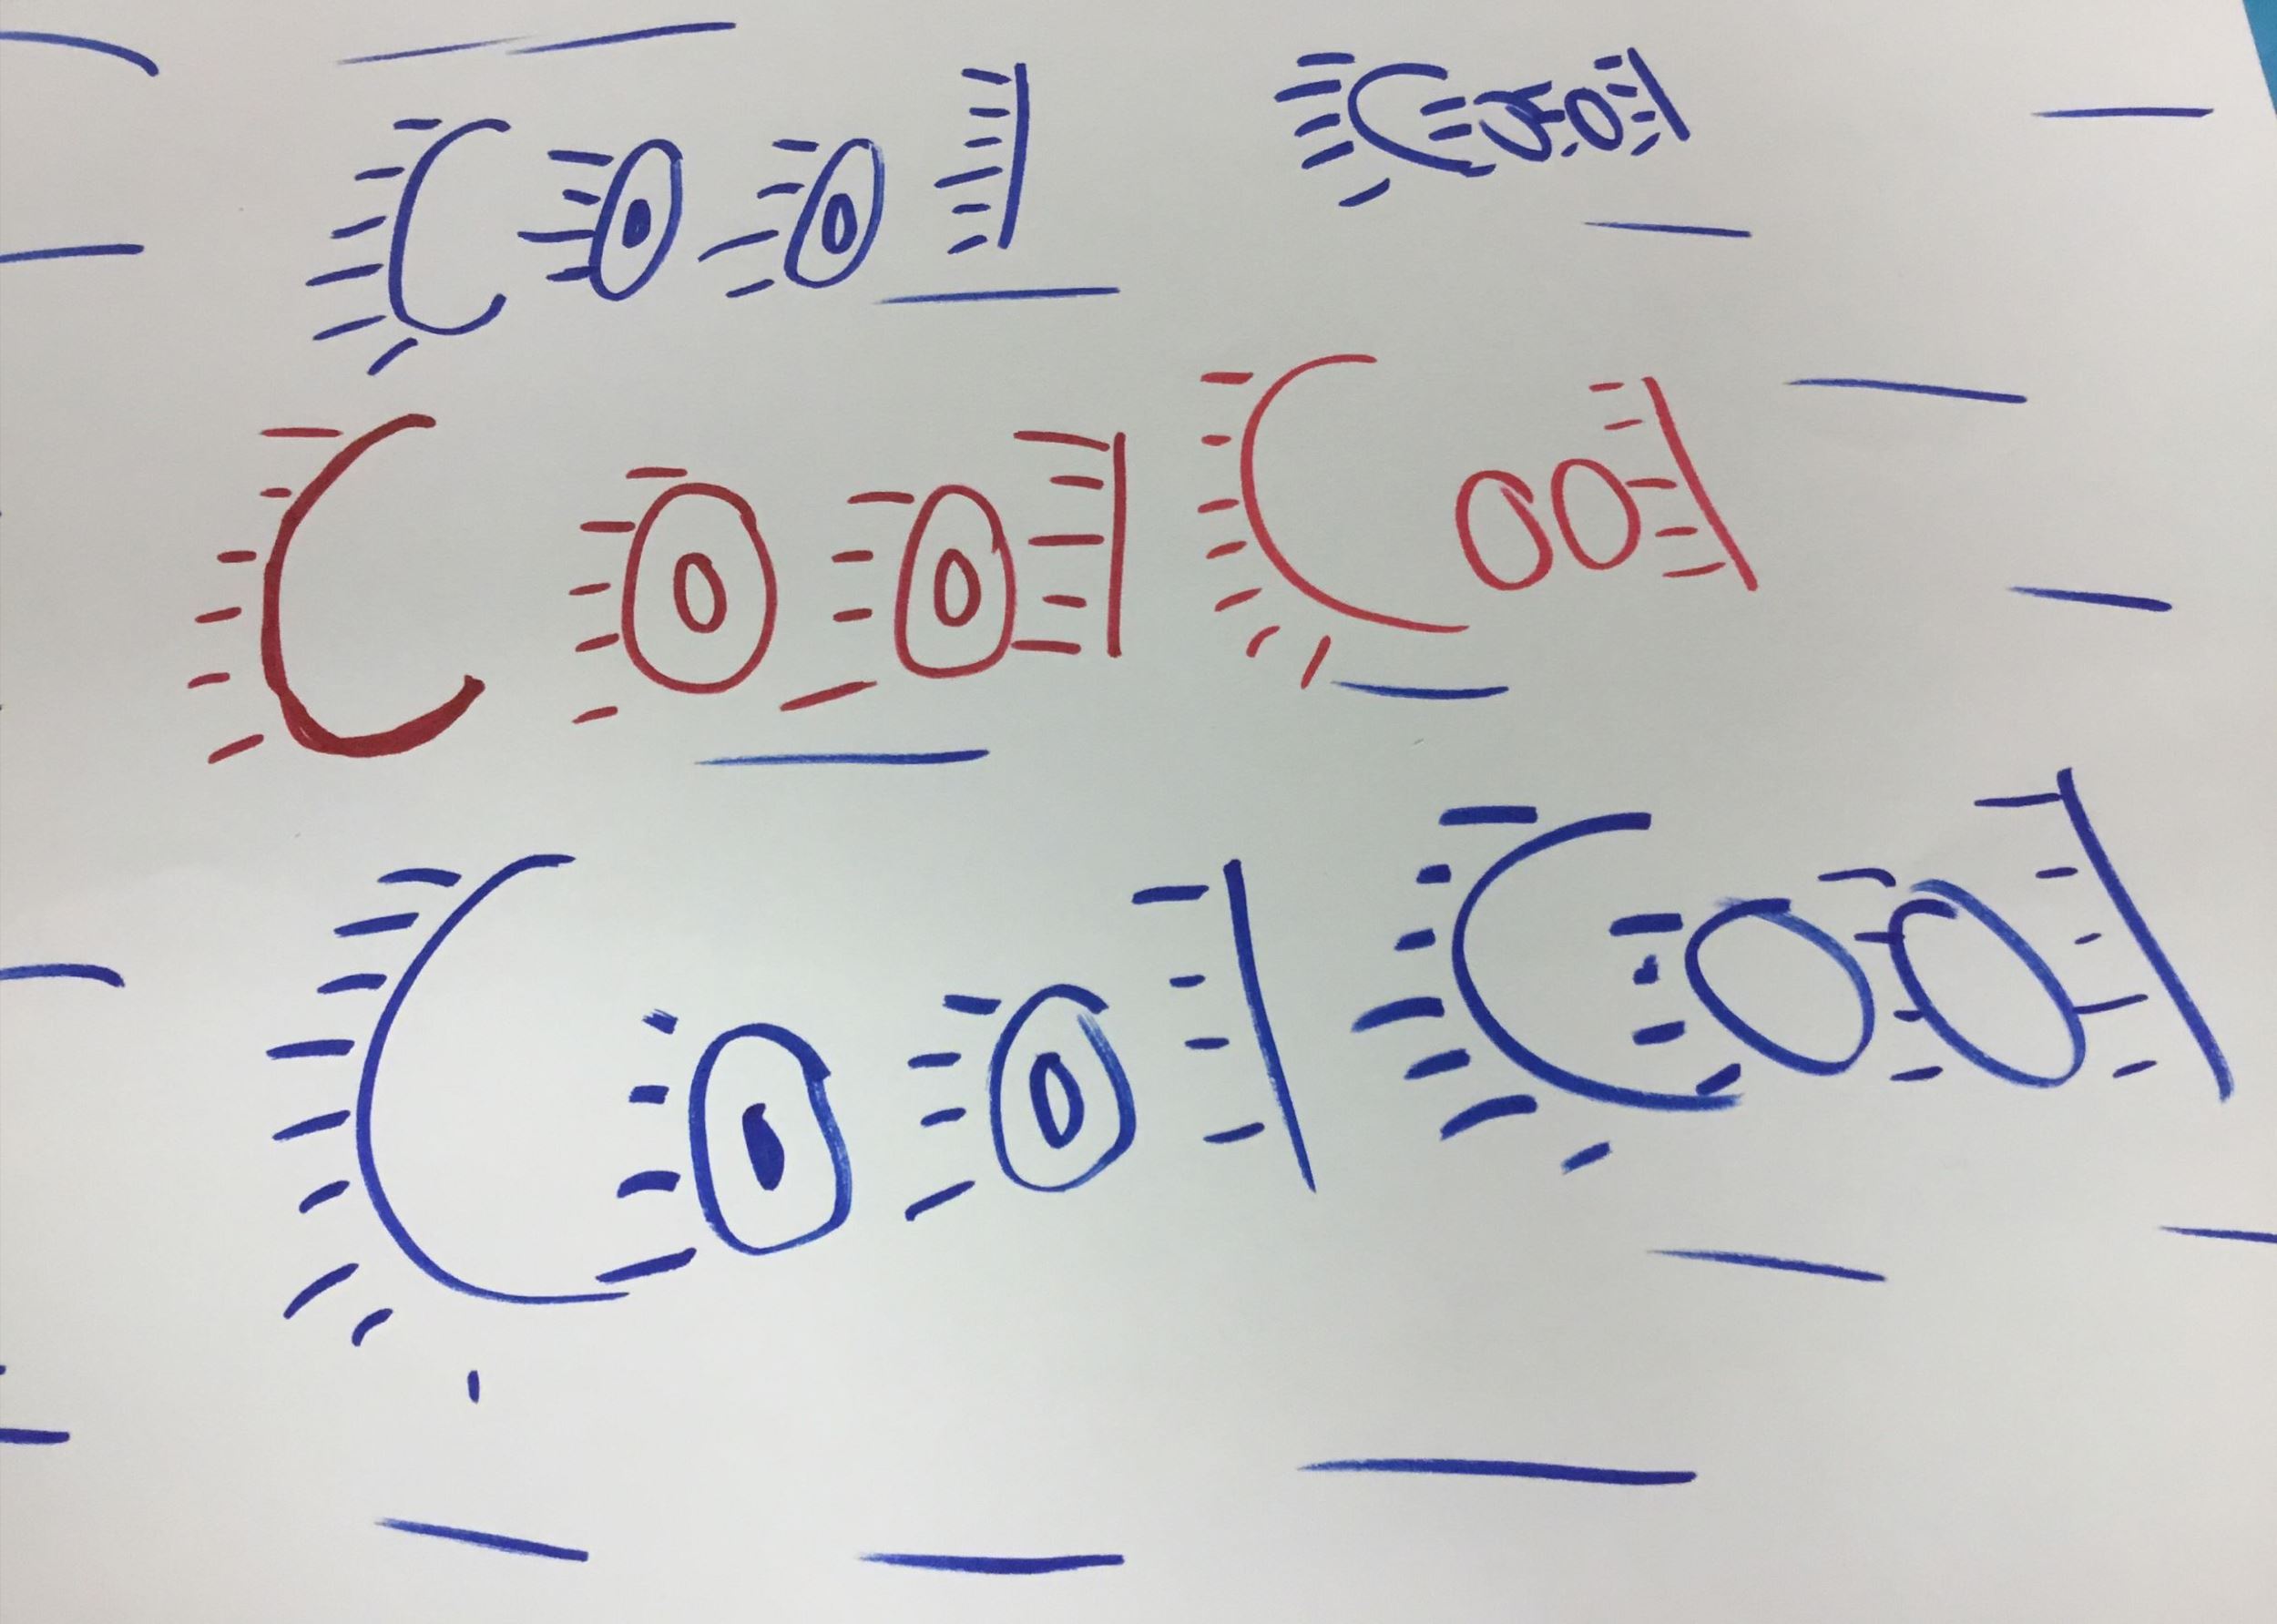 Cool Cool
Cool Cool
Cool Cool